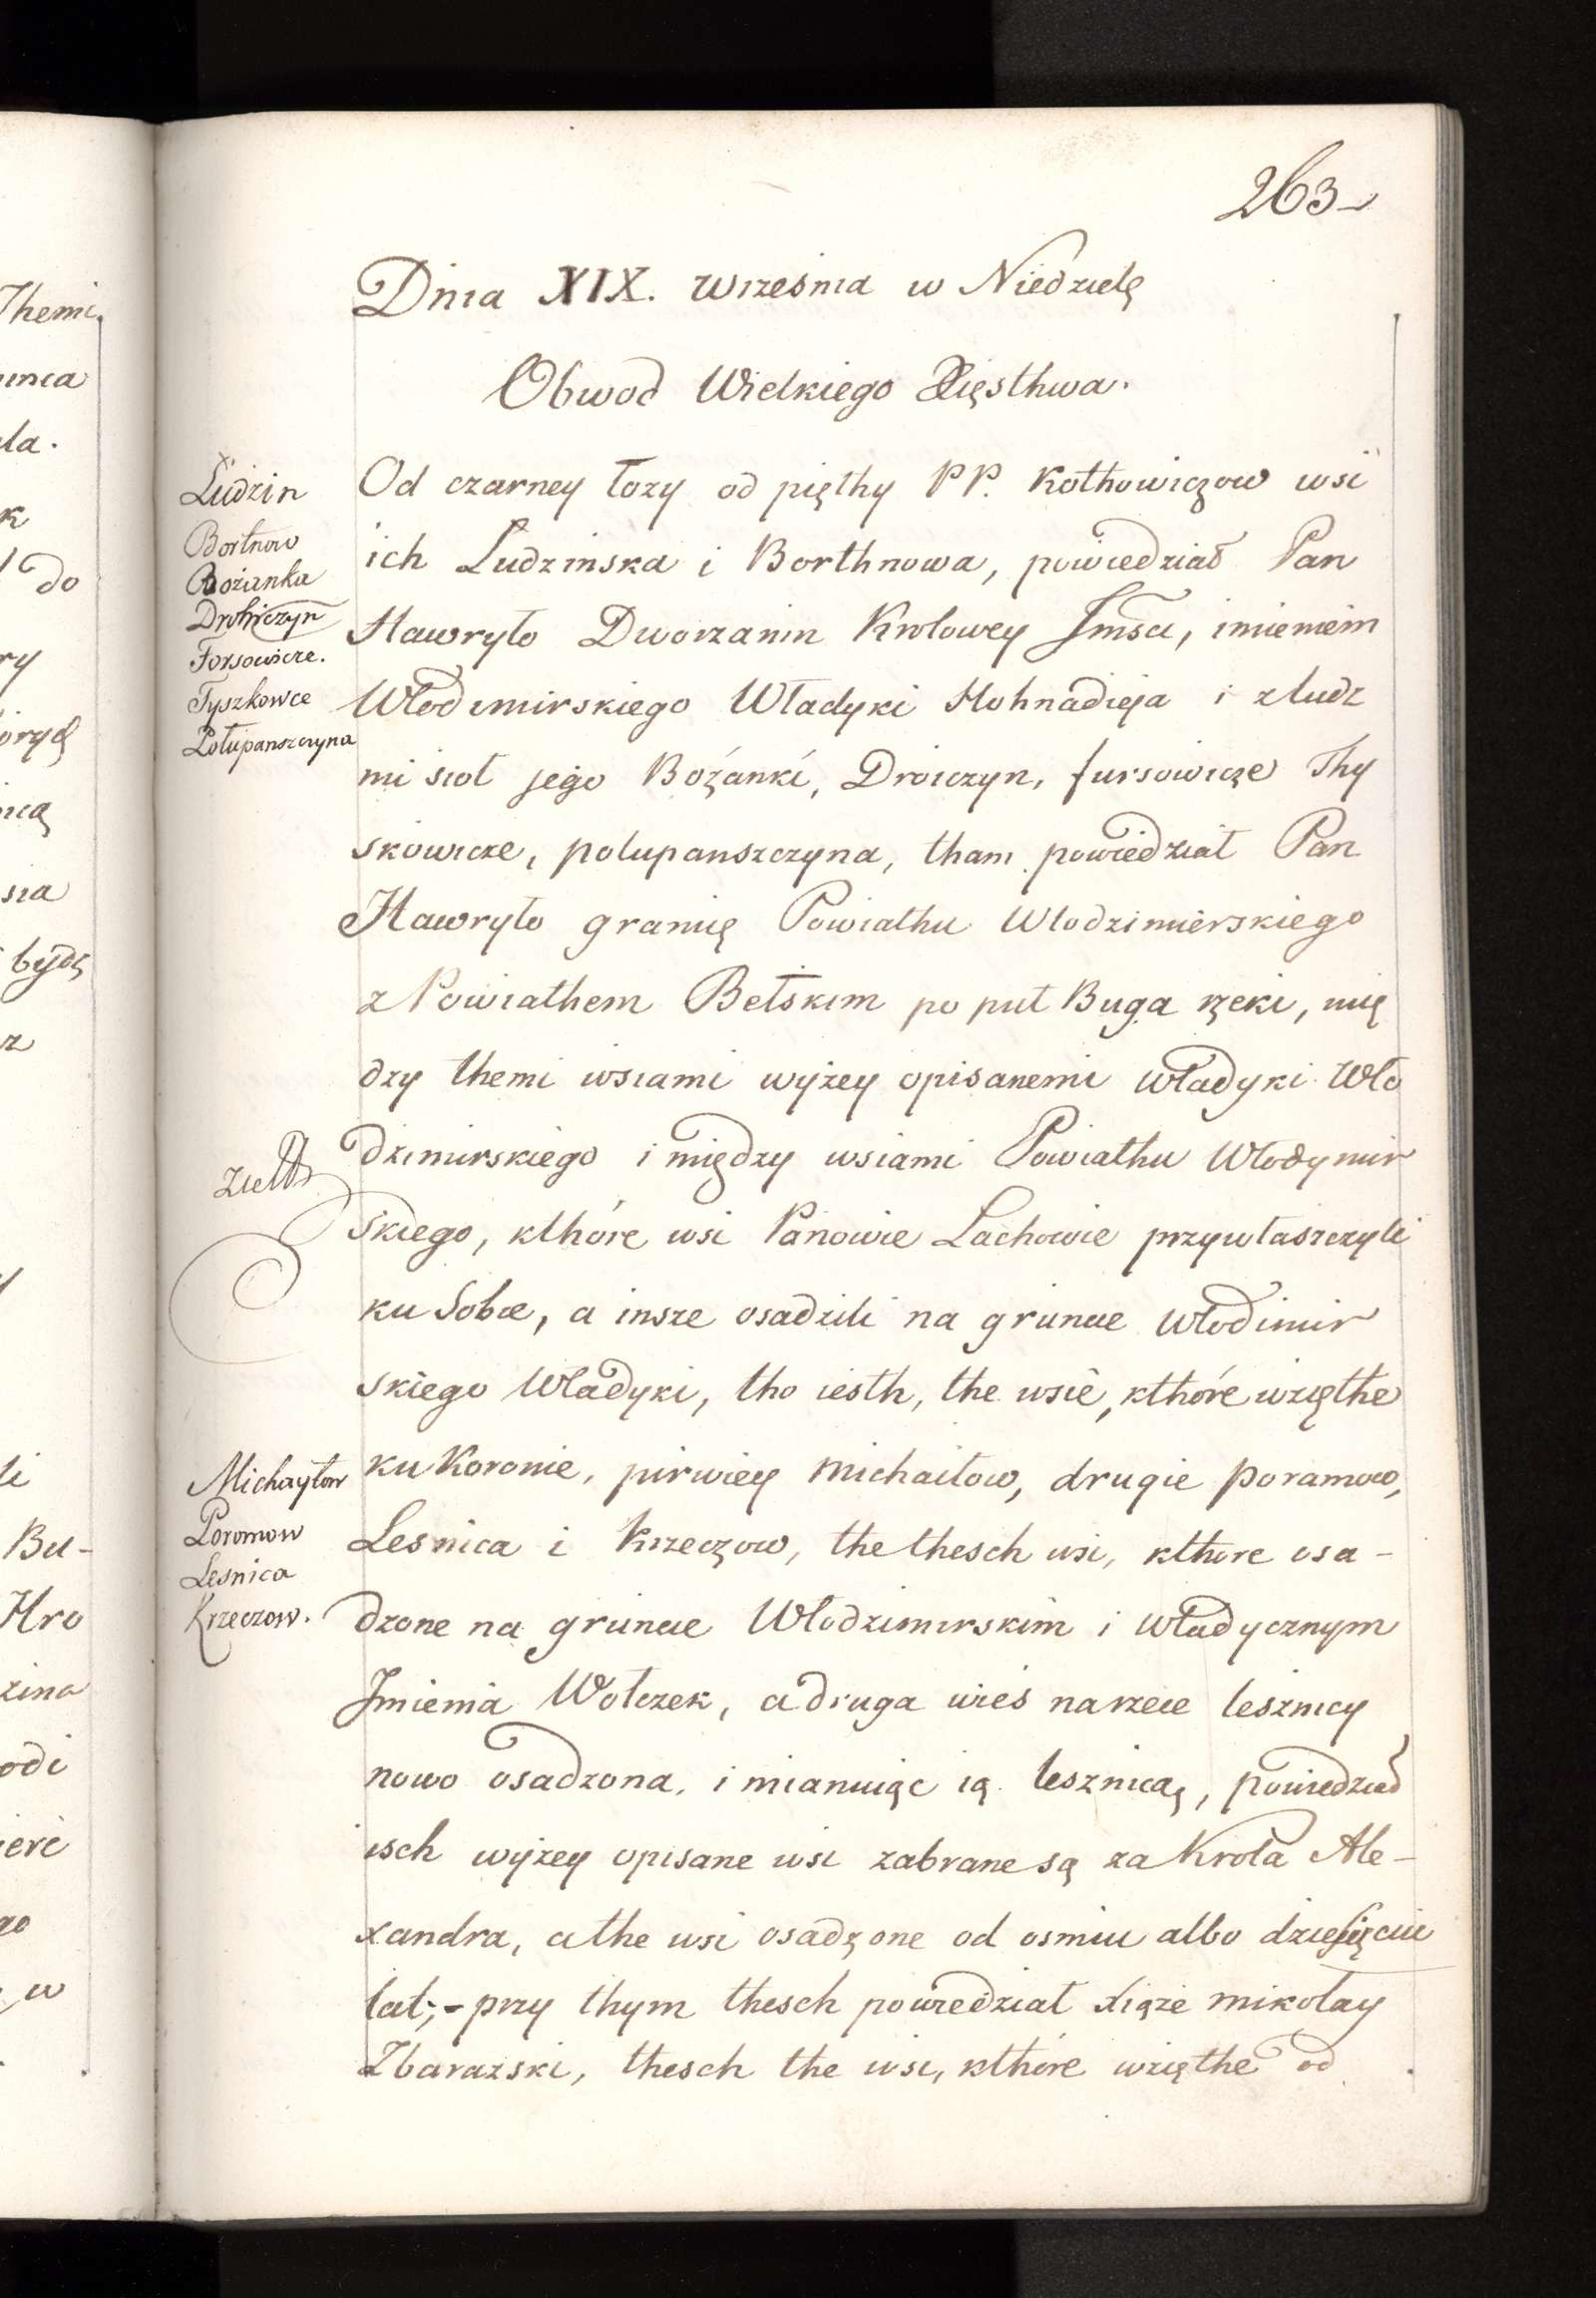 263
Dnia XIX. września w Niedzielę
Obwod Wielkiego Xięsthwa.
Od czarney łozy od pięthy PP. Kothowiczow wsi
ich Ludzinska i Borthnowa, powiedział Pan
Hawryło Dworzanin Krolowey Jmści, imieniem
Włodimirskiego Władyki Hohnadieja i z ludz
mi sioł jego Bożanki, Droiczyn, fursowicze Thy
skowicze, polupanszczyna, tham powiedział Pan
Hawryło granię Powiathu Wlodzimierskiego
z Powiathem Bełskim po puł Buga rzeki, mię
dzy themi wsiami wyżey opisanemi władyki Wło
dzimirskiego i między wsiami Powiathu Włodymir
skiego, kthóre wsi Panowie Lachowie przywłaszczyli
ku Sobie, a insze osadzili na gruncie włodimir
skiego Władyki, tho iesth, the wsie, kthóre wzięthe
ku Koronie, pirwiey Michaiłow, drugie Poramow,
Lesnica i Krzeczow, the thesch wsi, kthore osa-
dzone na gruncie Włodzimirskim i władycznym
Jmienia Wołczek, a druga wieś na rzece lesznicy
nowo osadzona, i mianuiąc ią lesznicą, powiedział
isch wyżey opisane wsi zabrane są za Krola Ale-
xandra, a the wsi osadzone od osmiu albo dziesięciu
lat;- przy thym thesch powiedział xiąże mikołay
Zbarazski, thesch the wsi, kthóre wzięthe od
Ludzin
Bortnow
Bożanka
Drohiczyn
Forsowicze.
Tyszkowce
Połupanszczyna
Michayłow
Poromow
Lesnica
Krzeczow.
Themi
la.
k
do
ry
nią
sia
bydź
z
li
Bu-
Hro
zina
odi
w